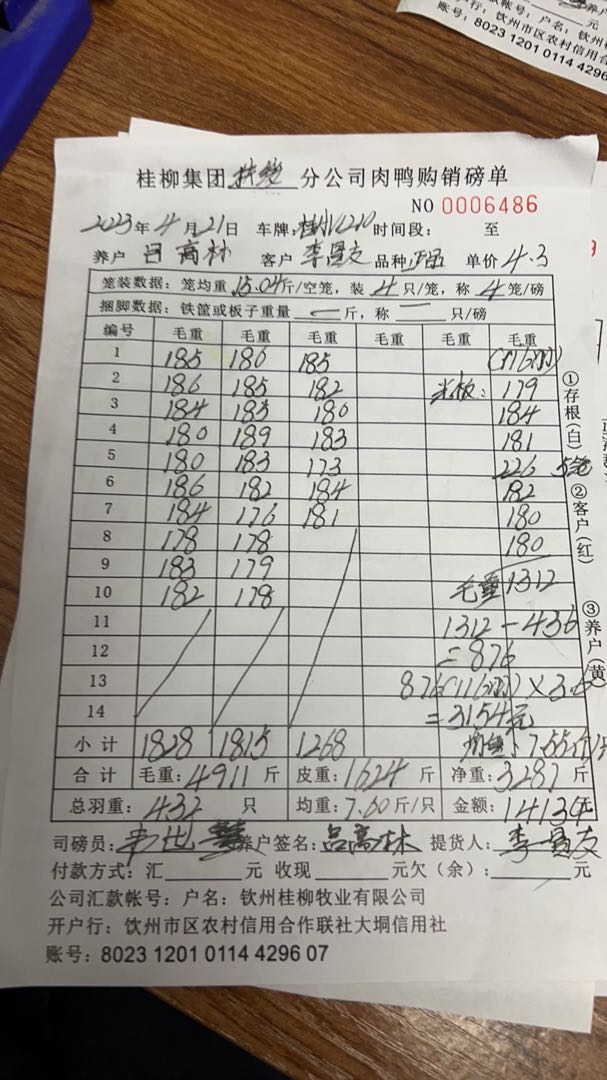 农户
元
账号：户名：钦州桂柳
行：钦州市区农村信用合
账号：8023 1201 0114 4296
桂柳集团 分公司肉鸭购销磅单
NO 0006486
2023年4月21日 车牌: 时间段： 至
养户 吕高林 客户 李贤友 品种 正品 单价 4.3
笼装数据：笼均重15.04斤/空笼，装 4 只/笼，称 4 笼/磅
捆脚数据：铁筐或板子重量 斤，称 只/磅
编号 毛重 毛重 毛重 毛重 毛重 毛重
1 185 180 185 (116羽)
2 186 185 182 光板：179
3 184 185 180 184
4 180 189 183 181
5 180 183 173 226 5笼
6 186 182 184 182
7 184 176 181 180
8 178 178 180
9 183 179 毛重1312
10 182 178
11 1312-436
12 =876
13 876(116羽)×3.6
14 =3154元
小计 1828 1815 1268 均重：7.55斤/
合计 毛重:4911斤 皮重:1624斤 净重:3287斤
总羽重：432 只 均重:7.60斤/只 金额:14134元
司磅员: 养户签名:吕高林 提货人:李贤友
付款方式：汇 元 收现 元欠（余）: 元
公司汇款帐号：户名：钦州桂柳牧业有限公司
开户行：钦州市区农村信用合作联社大垌信用社
账号：8023 1201 0114 4296 07
①存根(白)
②客户(红)
③养户(黄